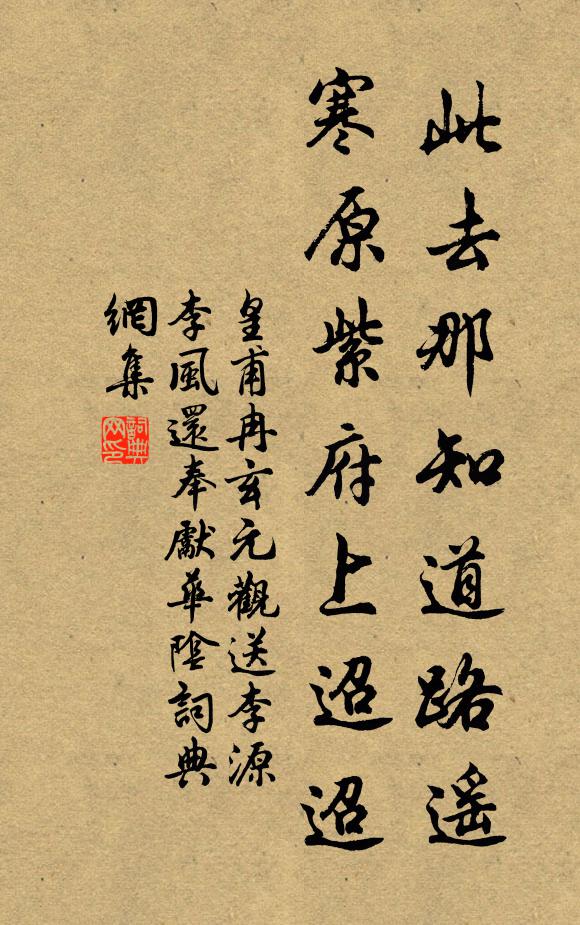 此去那知道路遥
寒原紫府上迢迢
皇甫冉玄元觀送李源
李風還奉獻華陰詞典
網集
詞典網印